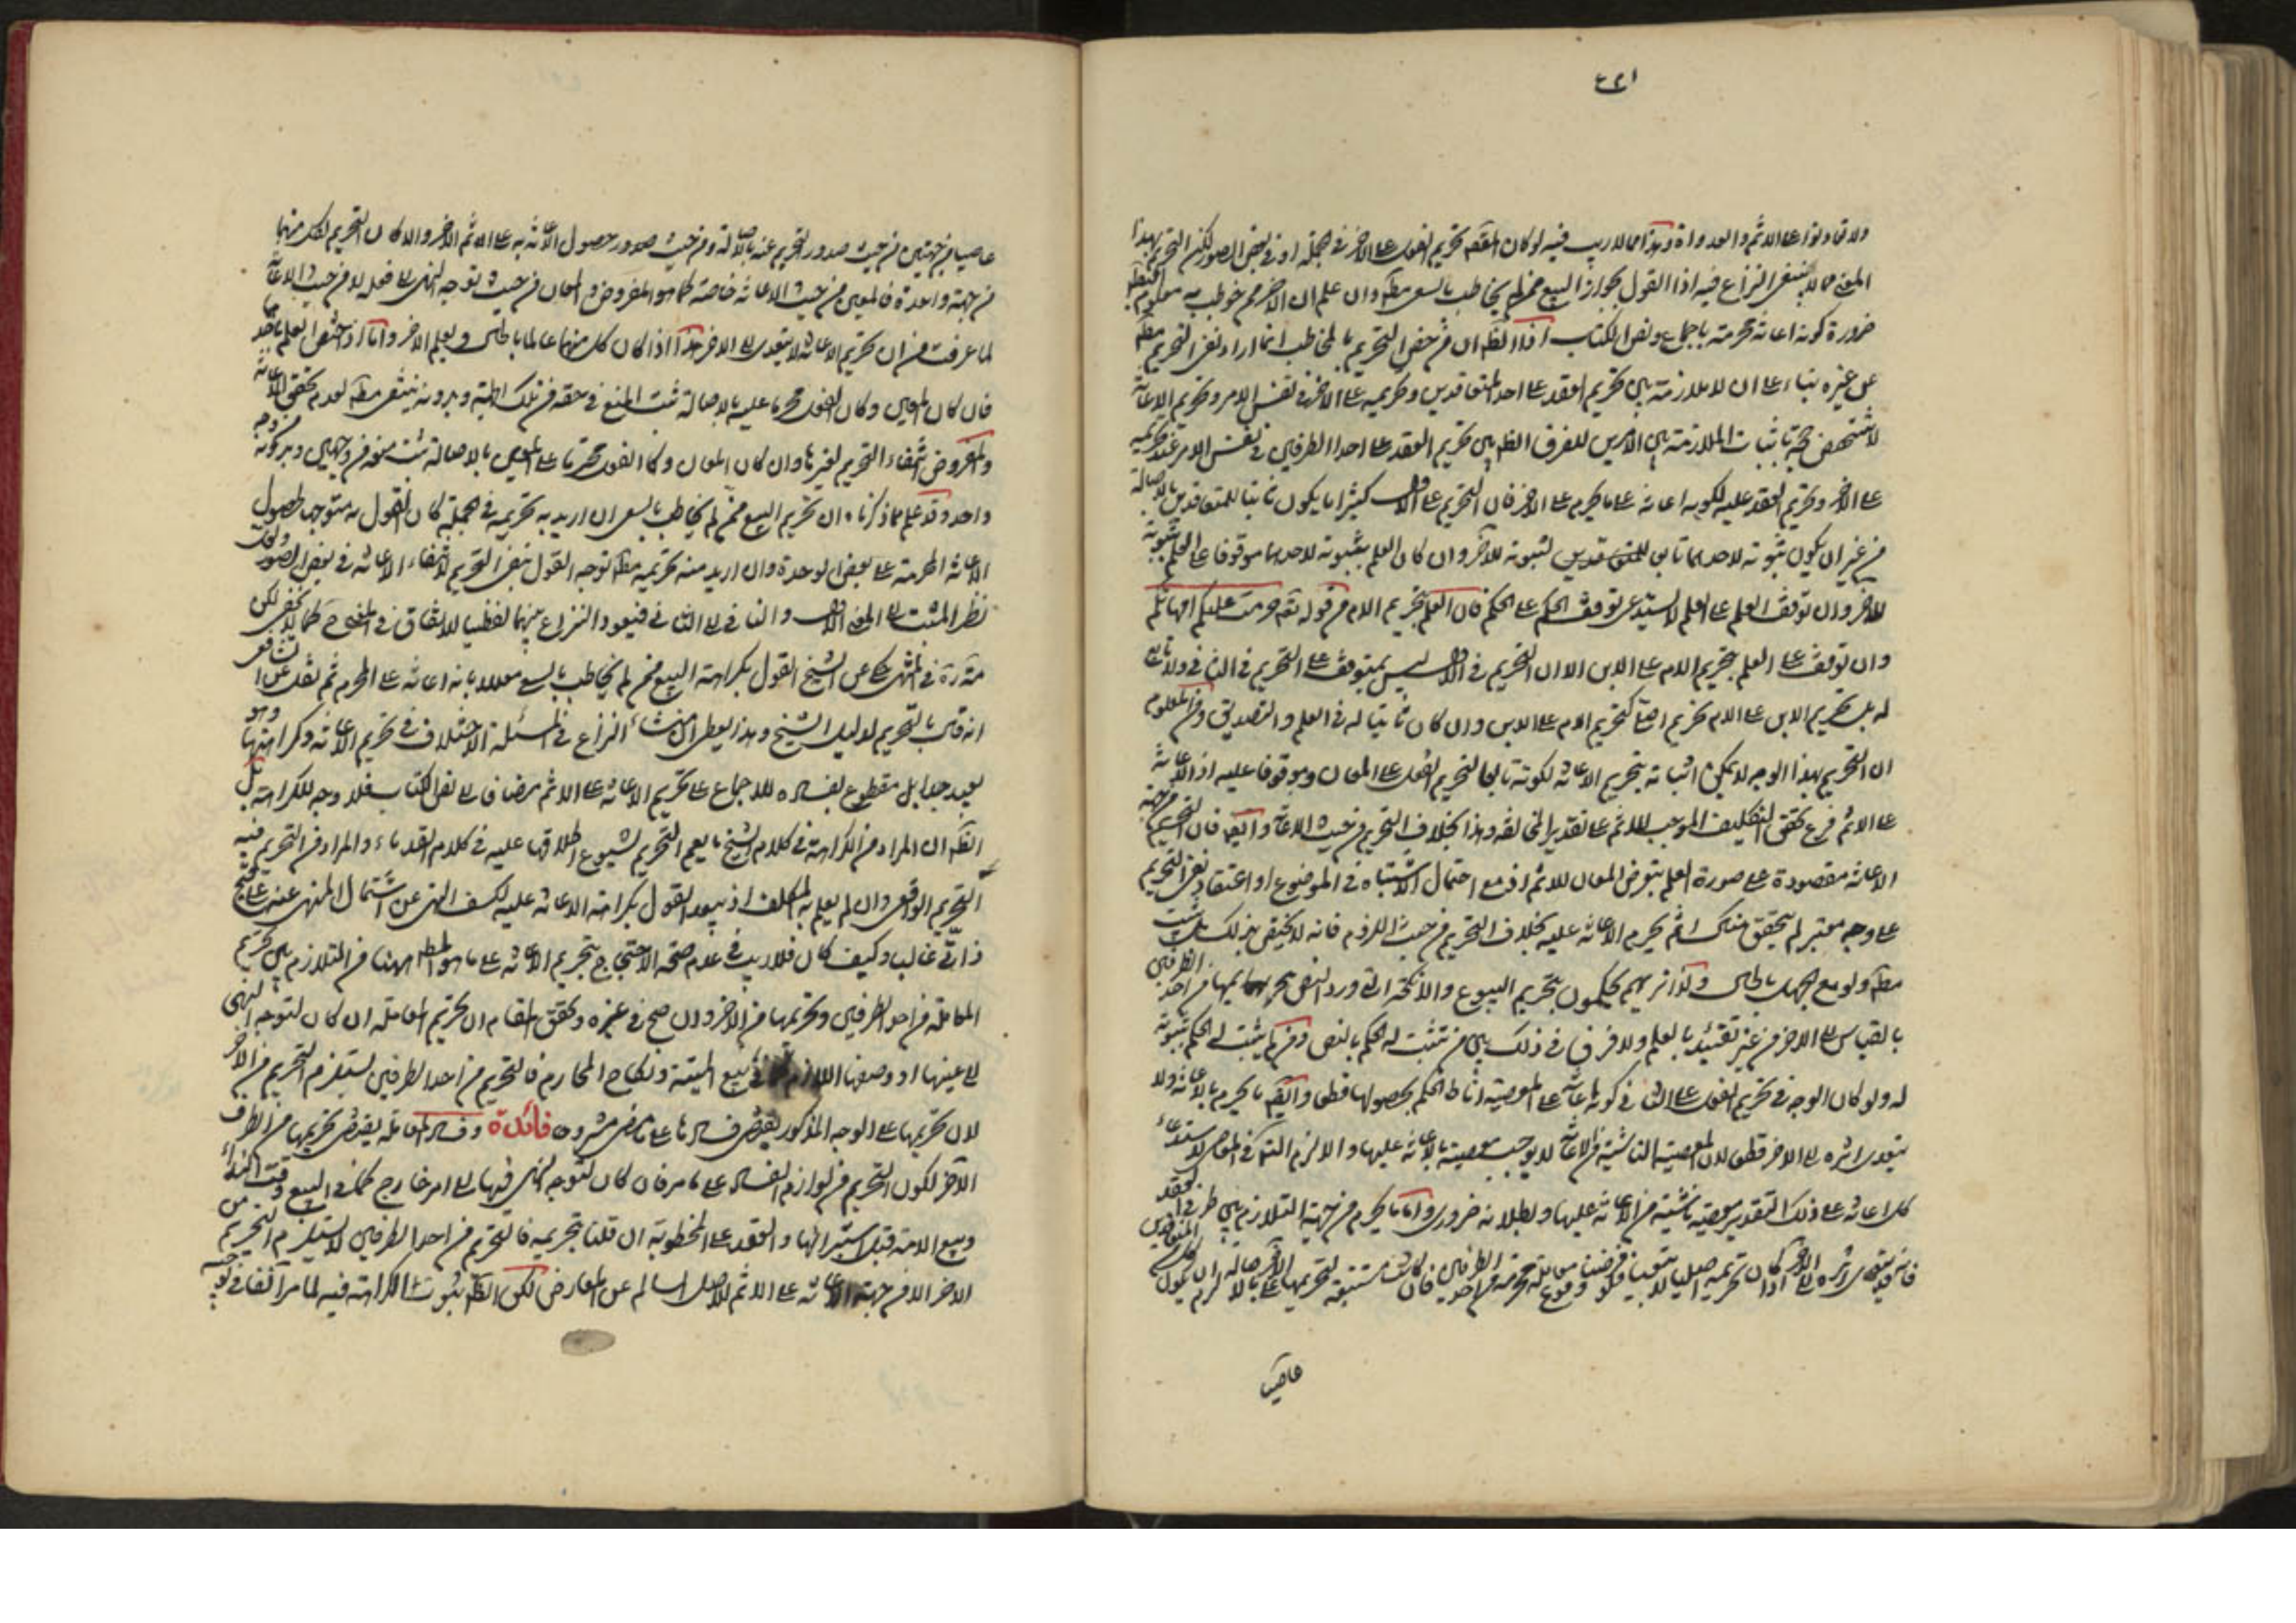 ٤٢١
ولا تعاونوا على الاثم والعدوان وهذا مما لا ريب فيه لو كان المقصد تحريم الفعل على الاخر في الجملة او في بعض الصور لكن التحريم بهذا
المعنى مما لا ينبغي النزاع فيه اذا القول بجواز البيع ممن لم يخاطب بالسعى مطلقا وان علم ان الاخر ممن خوطب به معلوم البطلان
ضرورة كونه اعانة محرمة باجماع ونص الكتاب اذا الظ ان من خص التحريم بالمخاطب انما اراد نفى التحريم مطلقا
عن غيره بناء على ان لا ملازمة بين تحريم العقد على احد المتعاقدين وتحريمه على الاخر في نفس الامر وتحريم الاعانة
لا ينهض حجة باثبات الملازمة بين الامرين للفرق الظ بين تحريم العقد على احد الطرفين في نفس الامر عند تحريمه
على الاخر وتحريم العقد عليه لكونه اعانة على ما يحرم على الاخر فان التحريم على الاول كثيرا ما يكون ثابتا للمتعاقدين بالاصالة
من غير ان يكون ثبوته لاحدهما تابعا لثبوته للاخر وان كان العلم بثبوته لاحدهما موقوفا على العلم بثبوته
للاخر وان توقف العلم على العلم لا يستدعى توقف الحكم على الحكم فان العلم بتحريم الام من قوله تعه حرمت عليكم امهاتكم
وان توقف على العلم بتحريم الام على الابن الا ان التحريم في الاول ليس بمتوقف على التحريم في الثانى ولا تابع
له بل تحريم الابن على الام تحريم اصلى كتحريم الام على الابن وان كان ثانيا له في العلم والتصديق ومن المعلوم
ان التحريم بهذا الوجه لا يمكن اثباته بتحريم الاعانة لكونه تابعا لتحريم الفعل على المعان وموقوفا عليه اذ الاعانة
على الاثم فرع تحقق التكليف الموجب للاثم على تقدير المخالفة وهذا بخلاف التحريم من حيث الاعانة وايضا فان التحريم من جهة
الاعانة مقصورة على صورة العلم بتعرض المعان للاثم اذ مع احتمال الاشتباه في الموضوع او اعتقاد نفى التحريم
على وجه معتبر لم يتحقق هناك اثم يحرم الاعانة عليه بخلاف التحريم من حيث اللزوم فانه لا يختص بذلك بل يثبت
مطلقا ولو مع الجهل بالحال ولذا تريهم يحكمون بتحريم البيوع والانكحة التى ورد النص بتحريمها من احد الطرفين
بالقياس الى الاخر من غير تقييد بالعلم ولا فرق في ذلك بين من تثبت له الحكم بالنص ومن لم يثبت له الحكم بثبوته
له ولو كان الوجه في تحريم الفعل على الثانى كونه اعانة على المعصية لناط الحكم بحصولها قطعا وايضا ما يحرم بالاعانة ولا
يتعدى اثره الى الاخر قطعا لان المعصية الناشئة من الاعانة لا يوجب معصية بالاعانة عليها والا لزم التسلسل في المعاصى لاستدعاء
كل اعانة على ذلك التقدير معصية ناشئة من الاعانة عليها وبطلانه ضرورى واما ما يحرم من جهة التلازم بين طرفى العقد
فانه يتعدى اثره الى الاخر اذا كان تحريمه اصليا لا تبعيا فلو فرضنا وقوع معاملة محرمة من احد الطرفين فان كانت مستتبعة لتحريمها على الاخر بالاصالة لزم ان يكون كل من المتعاقدين
عاصيا
عاصيا من جهتين من حيث صدور التحريم عنه بالاصالة ومن حيث صدور حصول الاعانة به على اثم الاخر والا كان التحريم لكل منهما
من جهة واحدة فالمعين من حيث الاعانة خاصة كما هو المفروض والمعان من حيث توجه النهى الى فعله لا من حيث الاعانة
لما عرفت من ان تحريم الاعانة لا يتعدى الى الاخر هذا اذا كان كل منهما عالما بالحال ويعلم الاخر واما اذا اختص العلم باحدهما
فان كان المعين وكان الفعل محرما عليه بالاصالة ثبت المنع في حقه من تلك الجهة وبدونه ينتفى مطلقا لعدم تحقق الاعانة
والمفروض انتفاء التحريم لغيرها وان كان المعان وكان الفعل محرما على المعين بالاصالة ثبت منعه من وجهين وبدونه من وجه
واحد وقد علم مما ذكرنا ان تحريم البيع ممن لم يخاطب بالسعى ان اريد به تحريمه في الجملة كان القول به متوجها لحصول
الاعانة المحرمة على بعض الوجوه وان اريد منه تحريمه مطلقا توجه القول بنفى التحريم لانتفاء الاعانة في بعض الصور ولعل
نظر المثبت الى المعنى الاول والنافى الى الثانى فيعود النزاع بينهما لفظيا للاتفاق في المعنى ح كما لا يخفى لكن
منه ره في المنتهى حكى عن الشيخ القول بكراهة البيع ممن لم يخاطب بالسعى معللا بانه اعانة على المحرم ثم نقل عن الشافعى
انه قال بالتحريم لدليل الشيخ وهذا يعطى ان منشاء النزاع في المسئلة الاختلاف في تحريم الاعانة وكراهتها وهو
بعيد جدا بل مقطوع بفساده للاجماع على تحريم الاعانة على الاثم مضافا الى نص الكتاب فلا وجه للكراهة بل
الظ ان المراد من الكراهة في كلام الشيخ ما يعم التحريم لشيوع اطلاقها عليه في كلام القدماء والمراد من التحريم فيه
التحريم الواقعى وان لم يعلم به المكلف اذ يبعد القول بكراهة الاعانة عليه لكشف النهى عن اشتمال المنهى عنه على قبح
ذاتى غالبا وكيف كان فلا ريب في عدم صحة الاحتجاج بتحريم الاعانة على ما هو المط ههنا من التلازم بين تحريم
المعاملة من احد الطرفين وتحريمها من الاخر وان صح في غيره وتحقق المقام ان تحريم المعاملة ان كان لتوجه النهى
الى عينها او وصفها اللازم كما في بيع الميتة ونكاح المحارم فالتحريم من احد الطرفين يستلزم التحريم من الاخر
لان تحريمها على الوجه المذكور يقتضى فسادها على ما مر مشروحا فائدة وفساد المعاملة يقتضى تحريمها من الطرف
الاخر لكون التحريم من لوازم الفساد على ما مر فان كان لتوجه النهى فيها الى امر خارج كما في البيع وقت النداء
وبيع الامة قبل استبرائها والعقد على المخطوبة ان قلنا بتحريمه فالتحريم من احد الطرفين لا يستلزم التحريم من
الاخر الا من جهة الاعانة على الاثم للاصل السالم عن المعارض لكن الظ ثبوت الكراهة فيه لما مر آنفا في توجيه